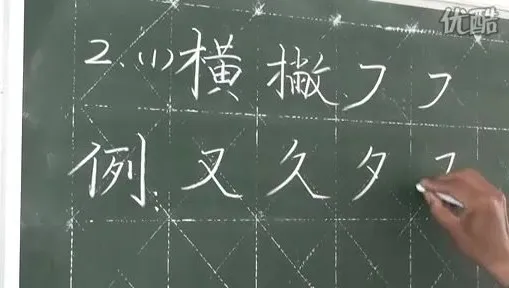 优酷
2.(1)横撇 フ フ
例. 又 久 夕